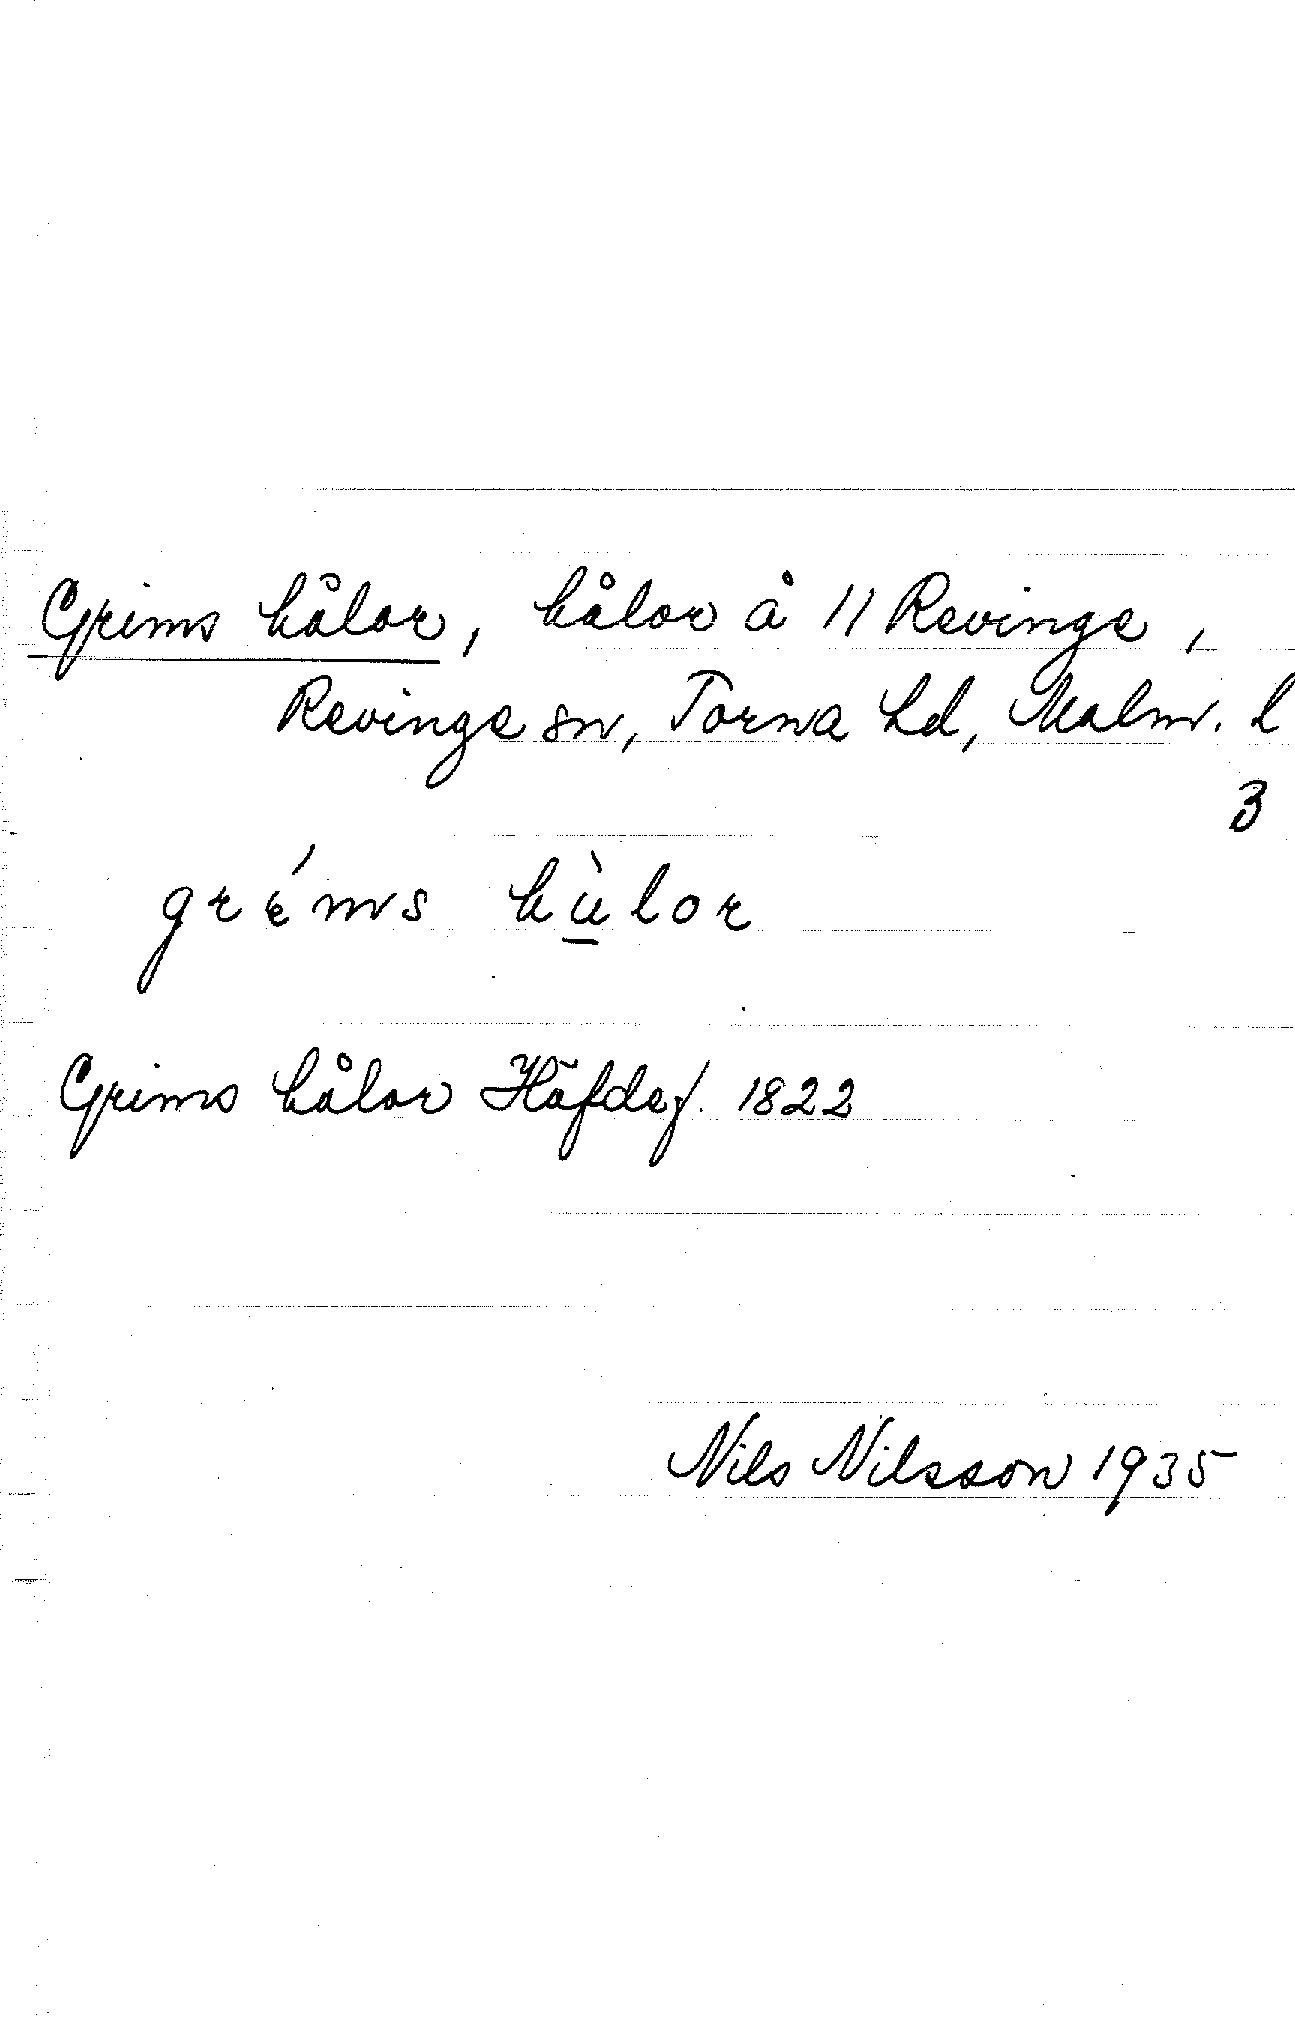 Grims hålor, hålor å 11 Revinge,
Revinge sn, Torna hd, Malm. l
B
gréms hùlor
Grims hålor Häfdef. 1822
Nils Nilsson 1935